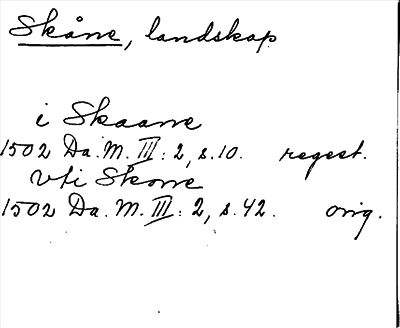 Skåne, landskap
i Skaane
1502 Da. M. III: 2, s. 10. regest.
vti Skone
1502 Da. M. III: 2, s. 42. orig.